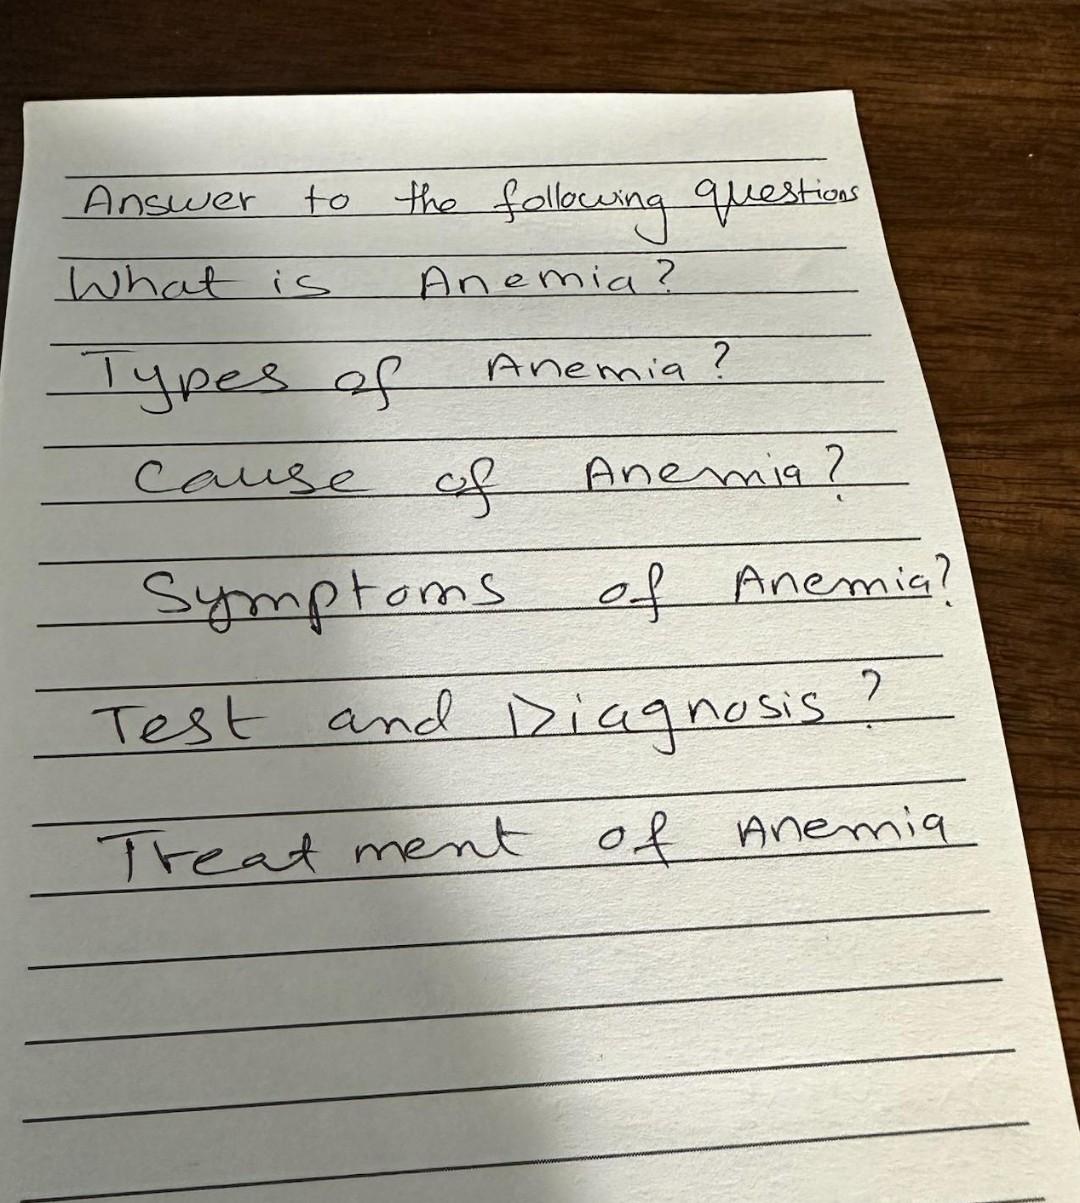 Answer to the following questions
What is Anemia?
Types of Anemia?
Cause of Anemia?
Symptoms of Anemia?
Test and Diagnosis?
Treatment of Anemia